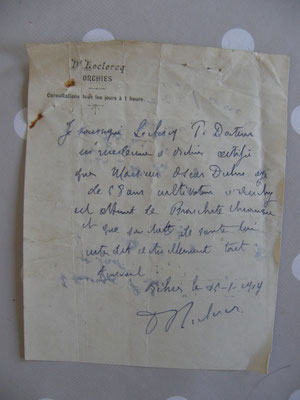 Dr Leclercq
ORCHIES
Consultations tous les jours à 1 heure
Je soussigné Leclercq T. Docteur
en médecine d'Orchies certifie
que Monsieur Oscar Dubus
de 68 ans cultivateur
est atteint de Bronchite chronique
et que son état de santé lui
interdit actuellement tout
travail
Orchies le